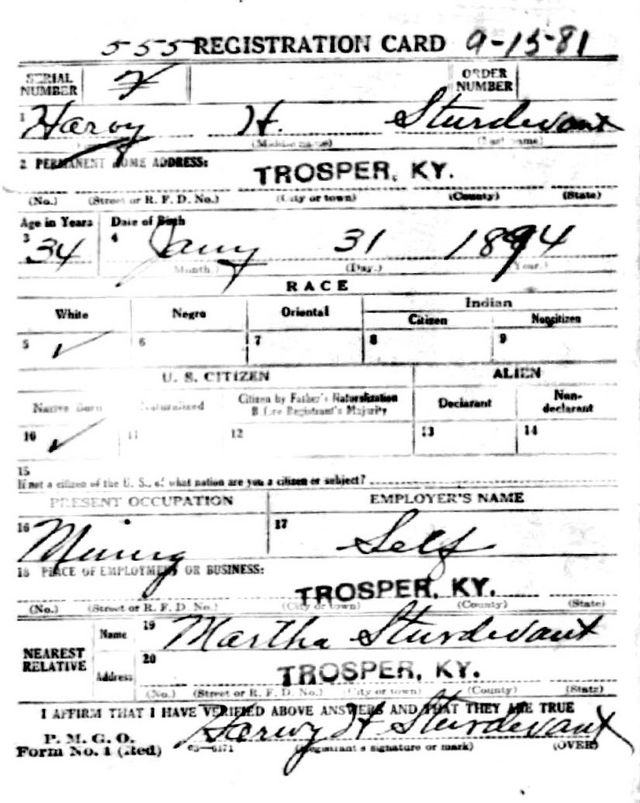 555 REGISTRATION CARD 9-15-81
SERIAL NUMBER 7 ORDER NUMBER
1 Harvy H. Sturdevant
(Middle name) (Last name)
2 PERMANENT HOME ADDRESS:
TROSPER, KY.
(No.) (Street or R. F. D. No.) (City or town) (County) (State)
Age in Years Date of Birth
3 34 4 Jany 31 1894
(Month.) (Day.) (Year.)
RACE
White Negro Oriental Indian
Citizen Noncitizen
5 ✓ 6 7 8 9
U. S. CITIZEN ALIEN
Native Born Naturalized Citizen by Father's Naturalization Before Registrant's Majority Declarant Non-declarant
10 ✓ 11 12 13 14
15
If not a citizen of the U. S., of what nation are you a citizen or subject?
PRESENT OCCUPATION EMPLOYER'S NAME
16 Mining 17 Self
18 PLACE OF EMPLOYMENT OR BUSINESS:
TROSPER, KY.
(No.) (Street or R. F. D. No.) (City or town) (County) (State)
NEAREST RELATIVE Name 19 Martha Sturdevant
Address 20 TROSPER, KY.
(No.) (Street or R. F. D. No.) (City or town) (County) (State)
I AFFIRM THAT I HAVE VERIFIED ABOVE ANSWERS AND THAT THEY ARE TRUE
P. M. G. O.
Form No. 1 (Red) 03-6171 Harvy H Sturdevant
(Registrant's signature or mark) (OVER)